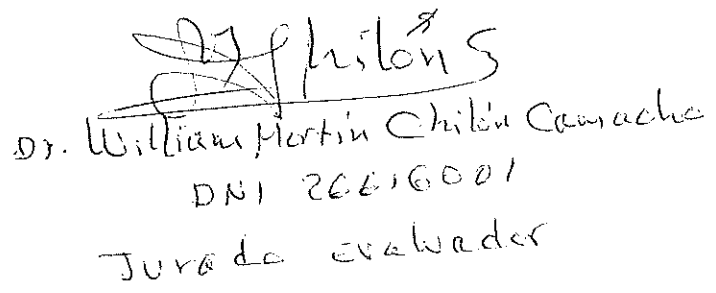 Chilón S
Dr. William Martín Chilón Camacho
DNI 26616001
Jurado evaluador